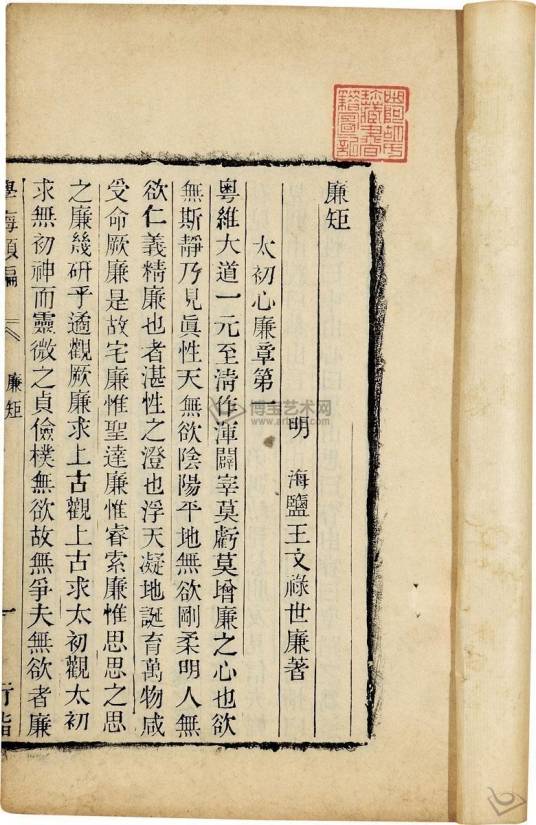 廉矩
明 海鹽王文祿世廉著
太初心廉章第一
粵維大道一元至清作渾闢宰莫虧莫增廉之心也欲
無斯靜乃見眞性天無欲陰陽平地無欲剛柔明人無
欲仁義精廉也者湛性之澄也浮天凝地誕育萬物咸
受命厥廉是故宅廉惟聖達廉惟睿索廉惟思思之思
之廉幾研乎遹觀厥廉求上古觀上古求太初觀太初
求無初神而靈微之貞儉樸無欲故無爭夫無欲者廉
學海類編 廉矩 一
博宝艺术网